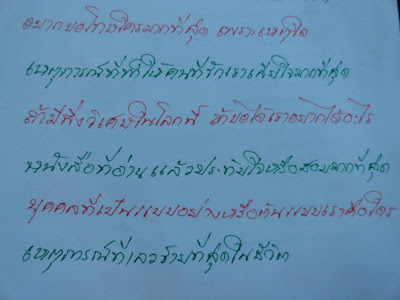 อยากขอโทษใครมากที่สุด เพราะเหตุใด
เหตุการณ์ที่ทำให้คนที่รักเราเสียใจมากที่สุด
ถ้ามีสิ่งวิเศษในโลกนี้ ถ้าขอได้เราอยากได้อะไร
หนังสือที่อ่านแล้วประทับใจหรือชอบมากที่สุด
บุคคลที่เป็นแบบอย่างหรือต้นแบบเราคือใคร
เหตุการณ์ที่เลวร้ายที่สุดในชีวิต